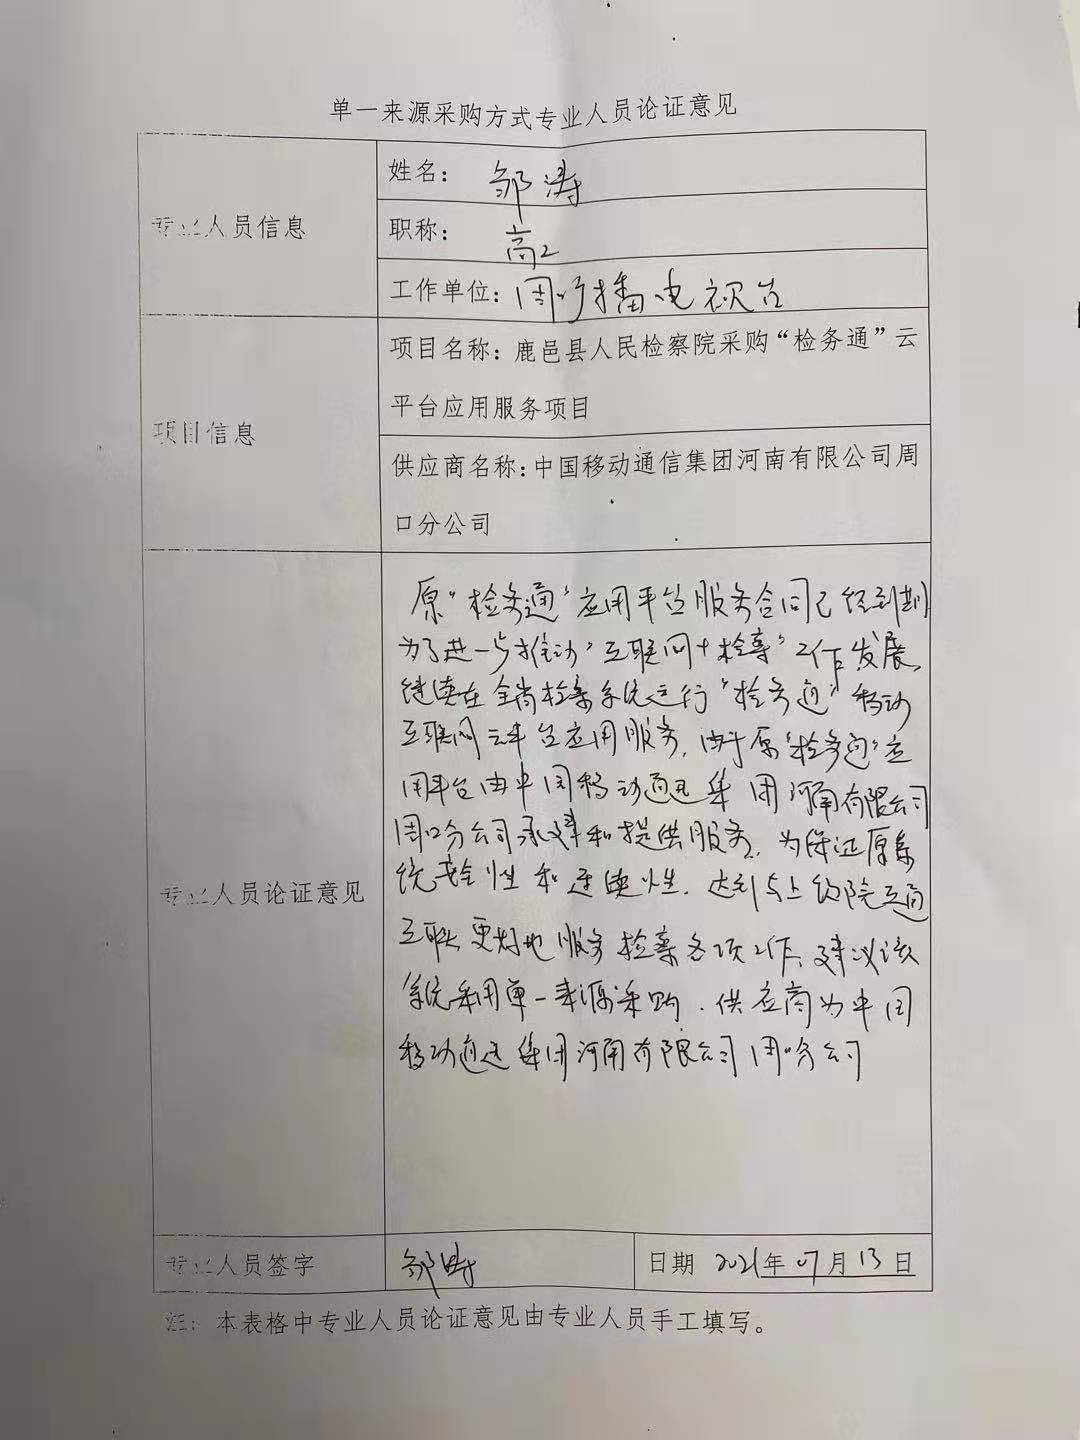 单一来源采购方式专业人员论证意见
专业人员信息
姓名：邹涛
职称：高工
工作单位：周口广播电视台
项目信息
项目名称：鹿邑县人民检察院采购“检务通”云
平台应用服务项目
供应商名称：中国移动通信集团河南有限公司周
口分公司
专业人员论证意见
原“检务通”应用平台服务合同已经到期
为了进一步推动“互联网+检察”工作发展，
继续在全省检察系统运行“检务通”移动
互联网云平台应用服务，由于原“检务通”应
用平台由中国移动通讯集团河南有限公司
周口分公司承建和提供服务，为保证原系
统安全性和连续性，达到与上级院互通
互联，更好地服务检察各项工作，建议该
系统采用单一来源采购，供应商为中国
移动通迅集团河南有限公司周口分公司
专业人员签字
邹涛
日期 2021年07月13日
注：本表格中专业人员论证意见由专业人员手工填写。